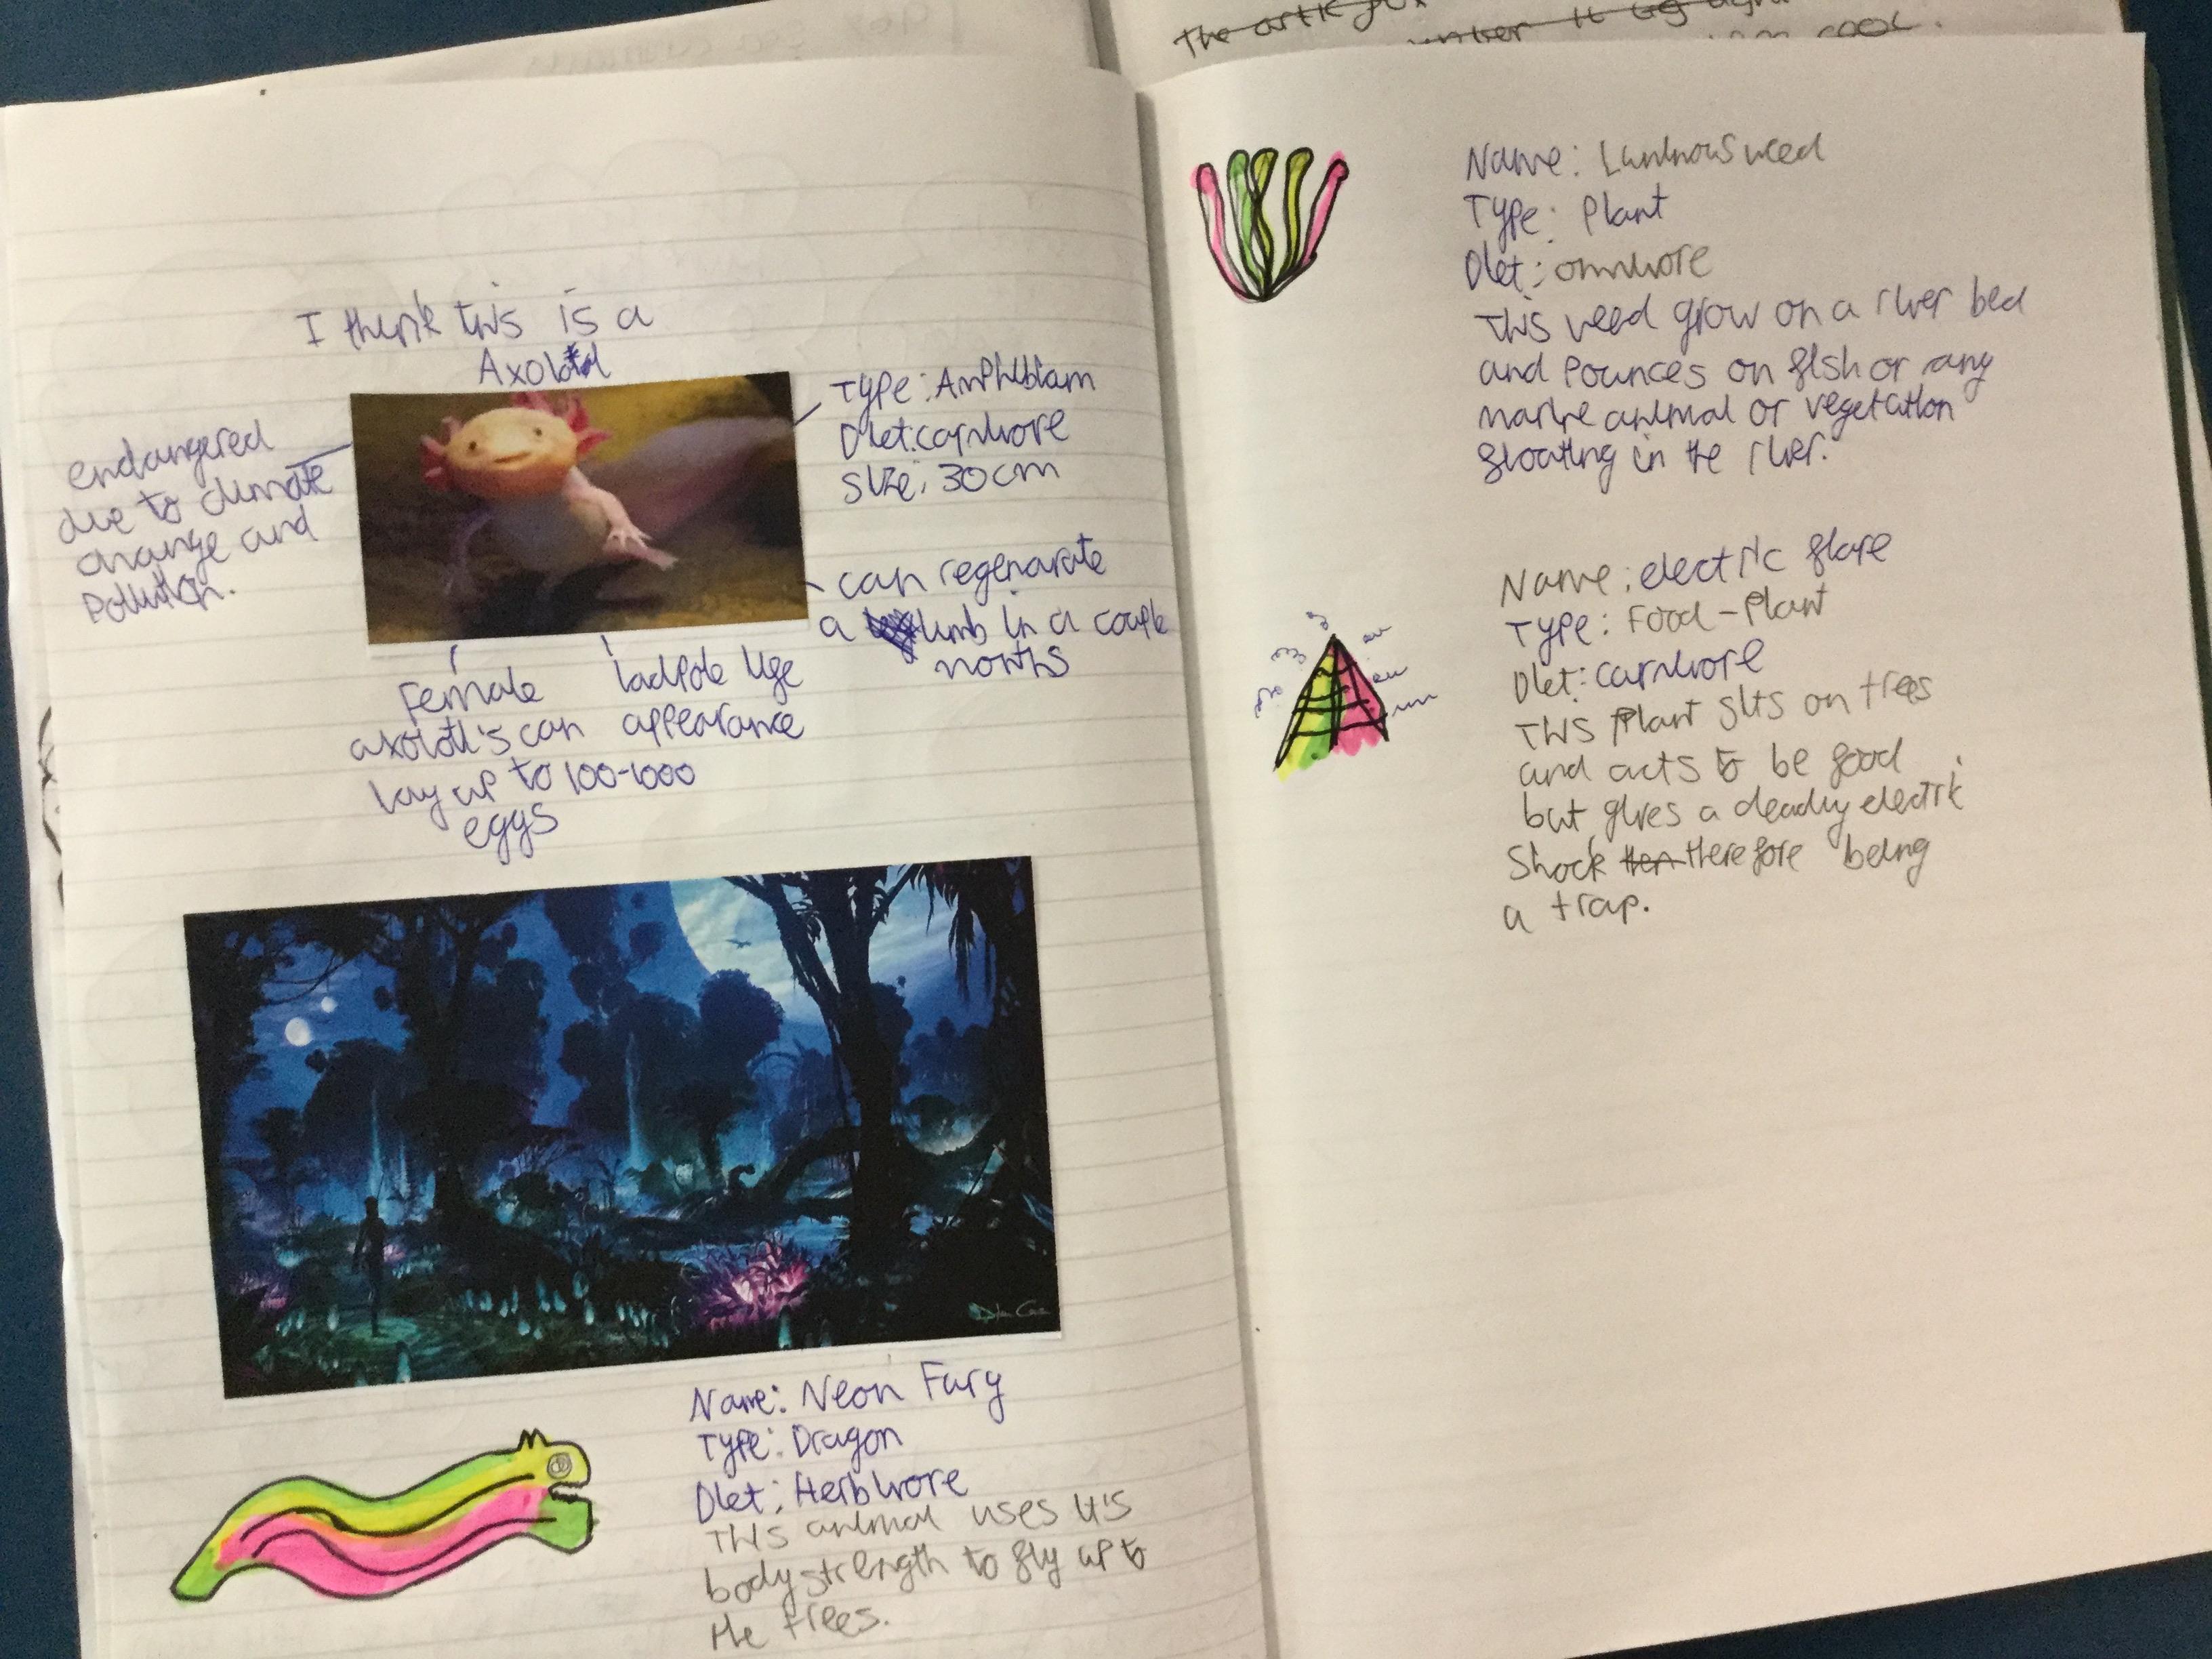 I think this is a
Axolotl
endangered
due to climate
change and
Pollution.
Type: Amphibian
Diet: carnivore
Size: 30cm
can regenarate
a limb in a couple
months
Female
axolotl's can
lay up to 100-1000
eggs
tadpole like
appearance
Name: Neon Fury
Type: Dragon
Diet: Herbivore
This animal uses it's
body strength to fly up to
the trees.
The
cool.
Name: Luminous weed
Type: Plant
Diet: omnivore
This weed grow on a river bed
and Pounces on fish or any
marine animal or vegetation
floating in the river.
Name: electric flare
Type: Food-Plant
Diet: carnivore
This Plant sits on trees
and acts to be food
but gives a deadly electric
Shock therefore being
a trap.